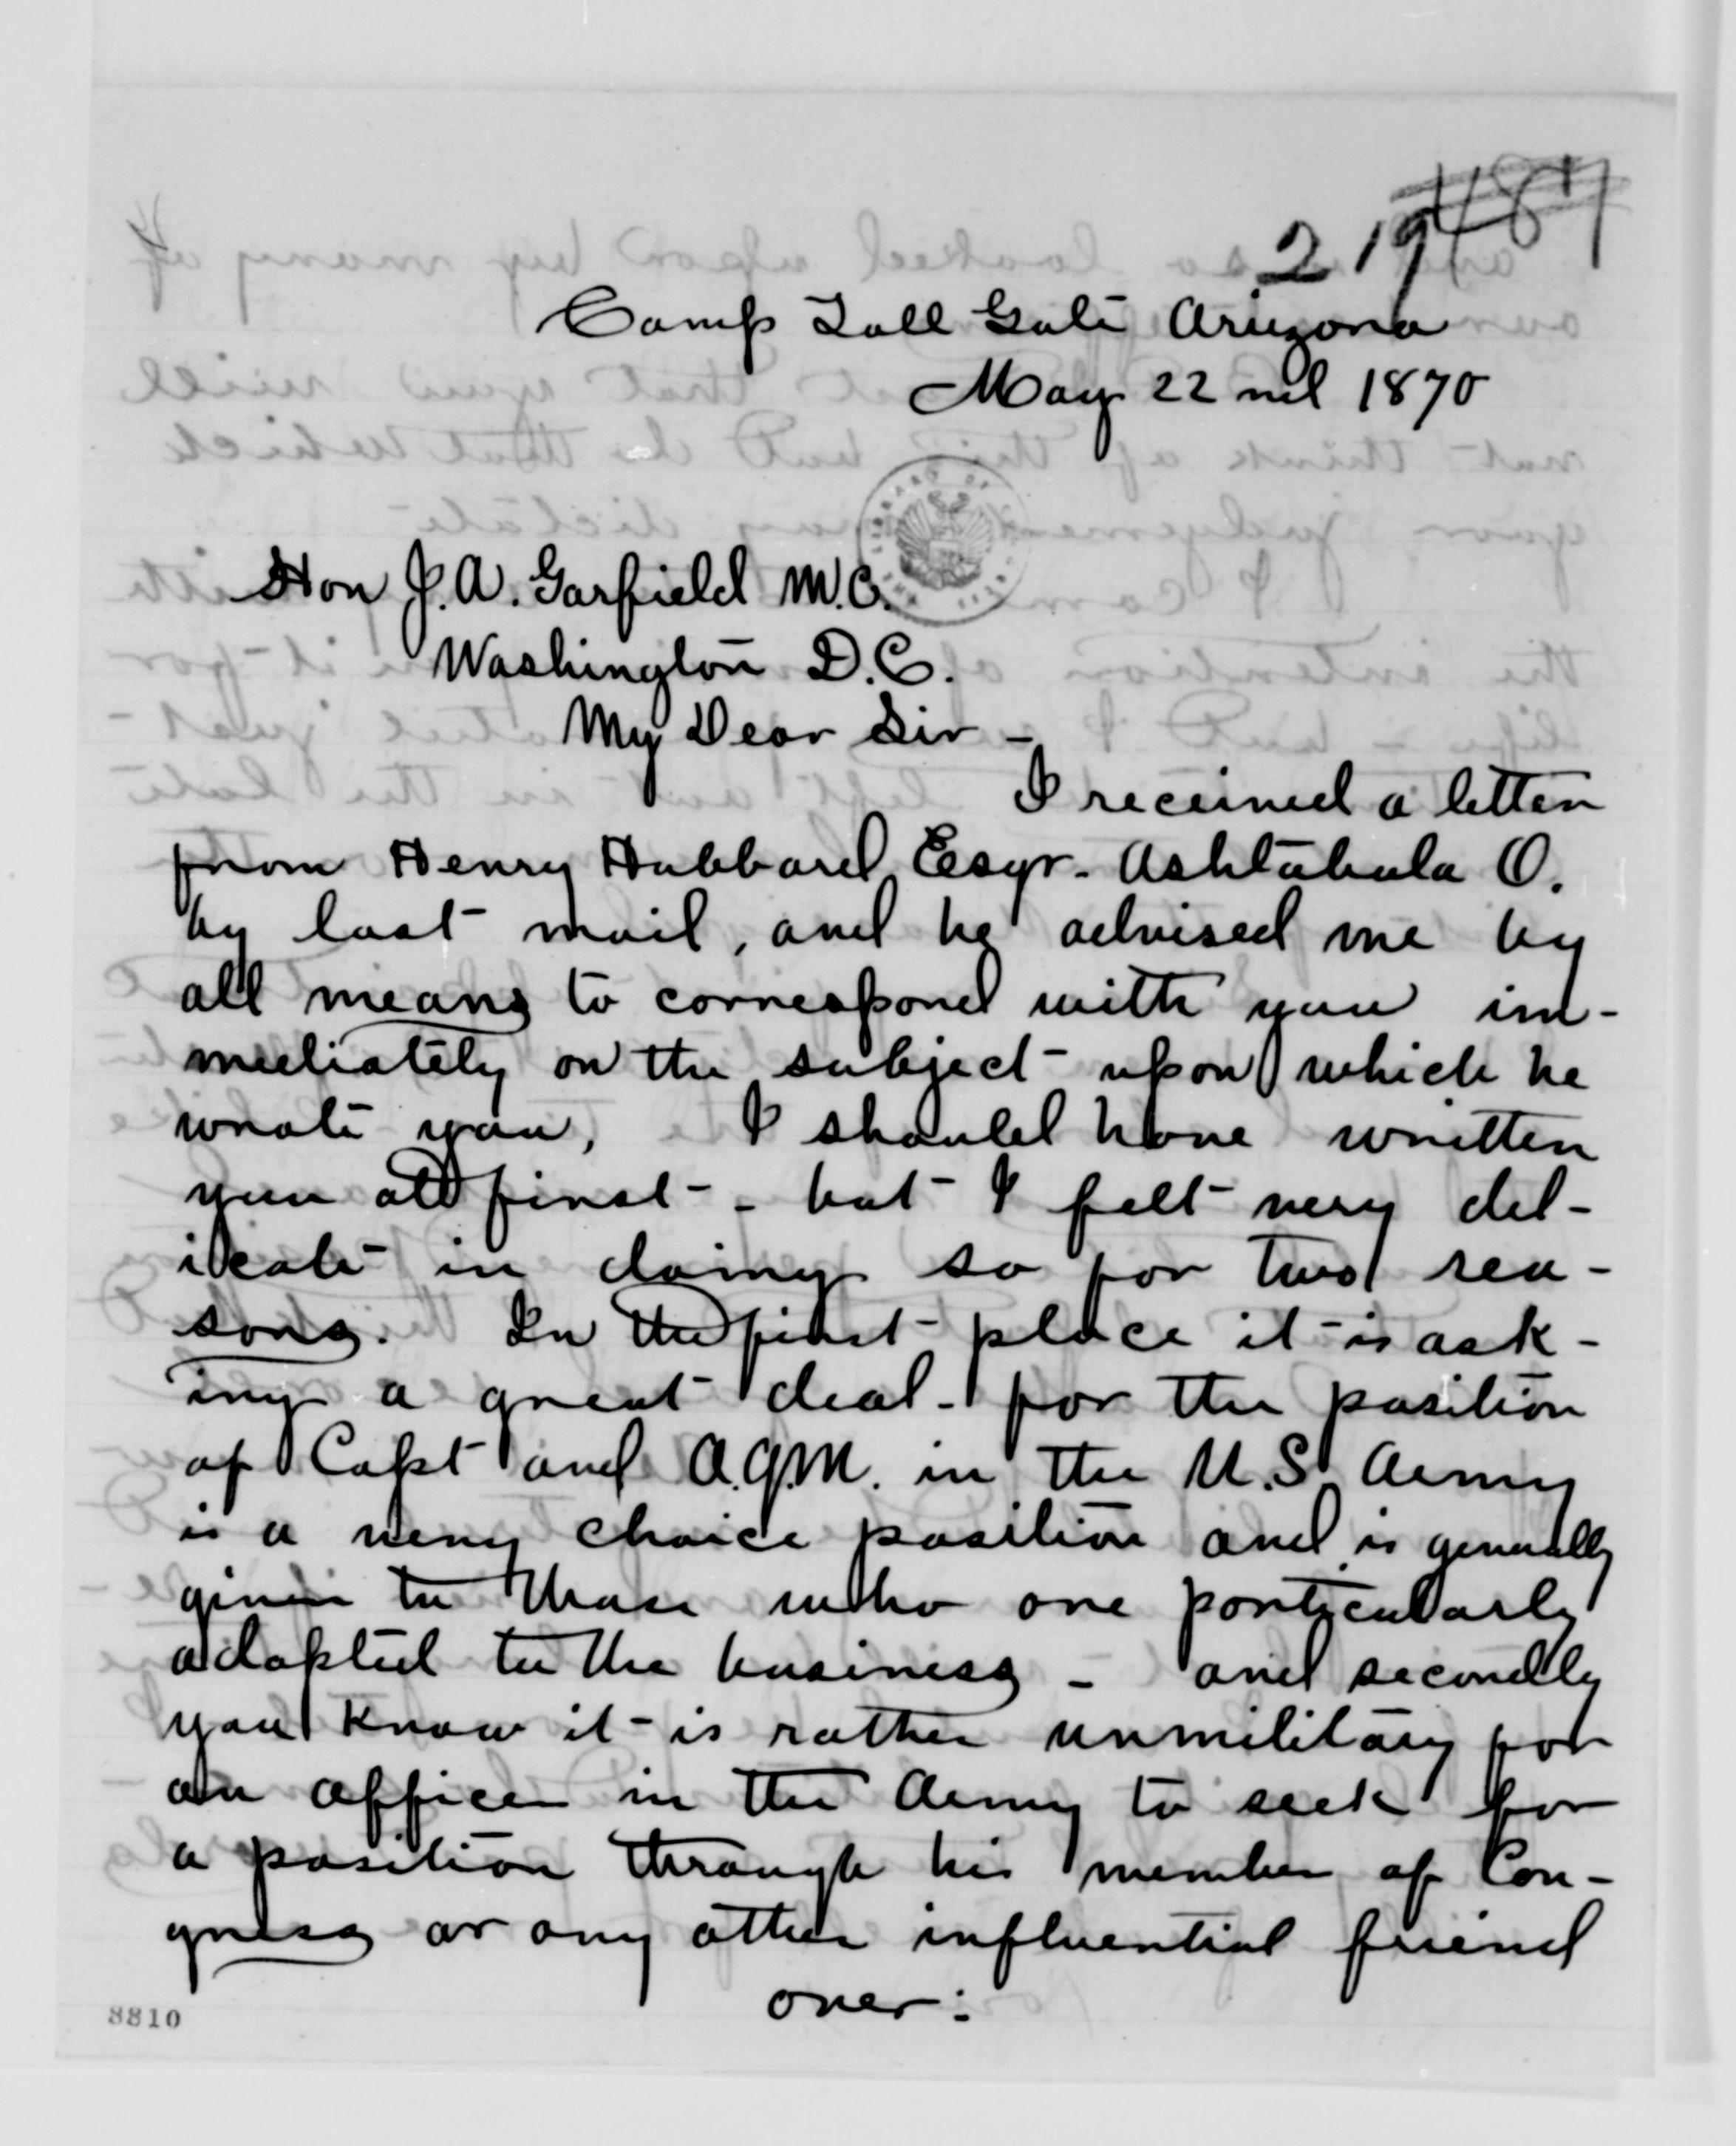 219
Camp Toll Gate Arizona
May 22nd 1870
Hon J. A. Garfield M.C.
Washington D.C.
My Dear Sir -
I received a letter
from Henry Hubbard Esqr. Ashtabula O.
by last mail, and he advised me by
all means to correspond with you im-
mediately on the subject upon which he
wrote you, I should have written
you at first - but I felt very del-
icate in doing so for two rea-
sons. In the first place it is ask-
ing a great deal - for the position
of Capt and A.Q.M. in the U.S. Army
is a very choice position and is generally
given to those who are particularly
adapted to the business - and secondly
you know it is rather unmilitary for
an officer in the Army to seek for
a position through his member of Con-
gress or any other influential friend
over:
8810